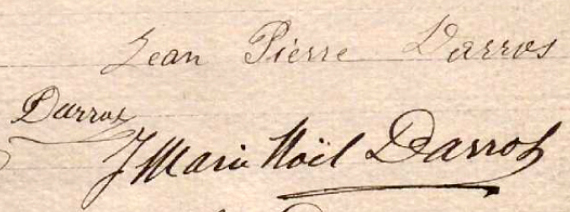 Jean Pierre Darros
Darrox
J Marie Noël Darrox